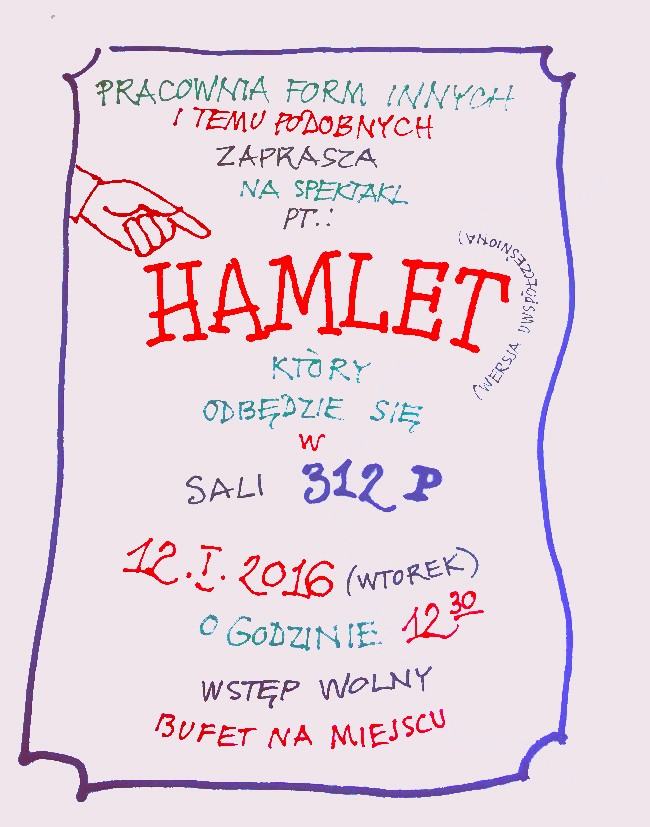 PRACOWNIA FORM INNYCH
I TEMU PODOBNYCH
ZAPRASZA
NA SPEKTAKL
PT.:
HAMLET
(WERSJA UWSPÓŁCZEŚNIONA)
KTÓRY
ODBĘDZIE SIĘ
W
SALI 312 P
12.I.2016 (WTOREK)
O GODZINIE 12 30
WSTĘP WOLNY
BUFET NA MIEJSCU